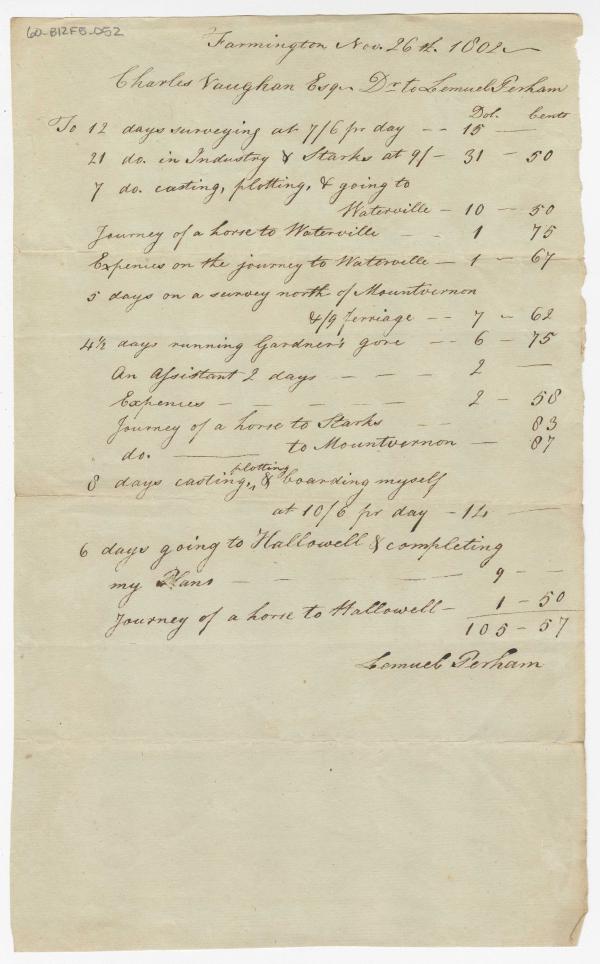 60-B12F5-052
Farmington Nov. 26th. 1802
Charles Vaughan Esqr. Dr. to Lemuel Perham
Dol. Cents
To 12 days surveying at 7/6 pr day -- 15 —
21 do. in Industry & Starks at 9/- 31 - 50
7 do. casting, plotting, & going to
Waterville - 10 - 50
Journey of a horse to Waterville - - 1 75
Expenses on the journey to Waterville - 1 - 67
5 days on a survey north of Mountvernon
& /9 ferriage -- 7 - 62
4½ days running Gardner's gore -- 6 - 75
An Assistant 2 days - - - - 2 —
Expenses - - - - - 2 - 58
Journey of a horse to Starks - - 83
do. —— to Mountvernon - 87
8 days casting, plotting, & boarding myself
at 10/6 pr day - 14 —
6 days going to Hallowell & completing
my Plans - - - 9 - -
Journey of a horse to Hallowell - 1 - 50
105 - 57
Lemuel Perham